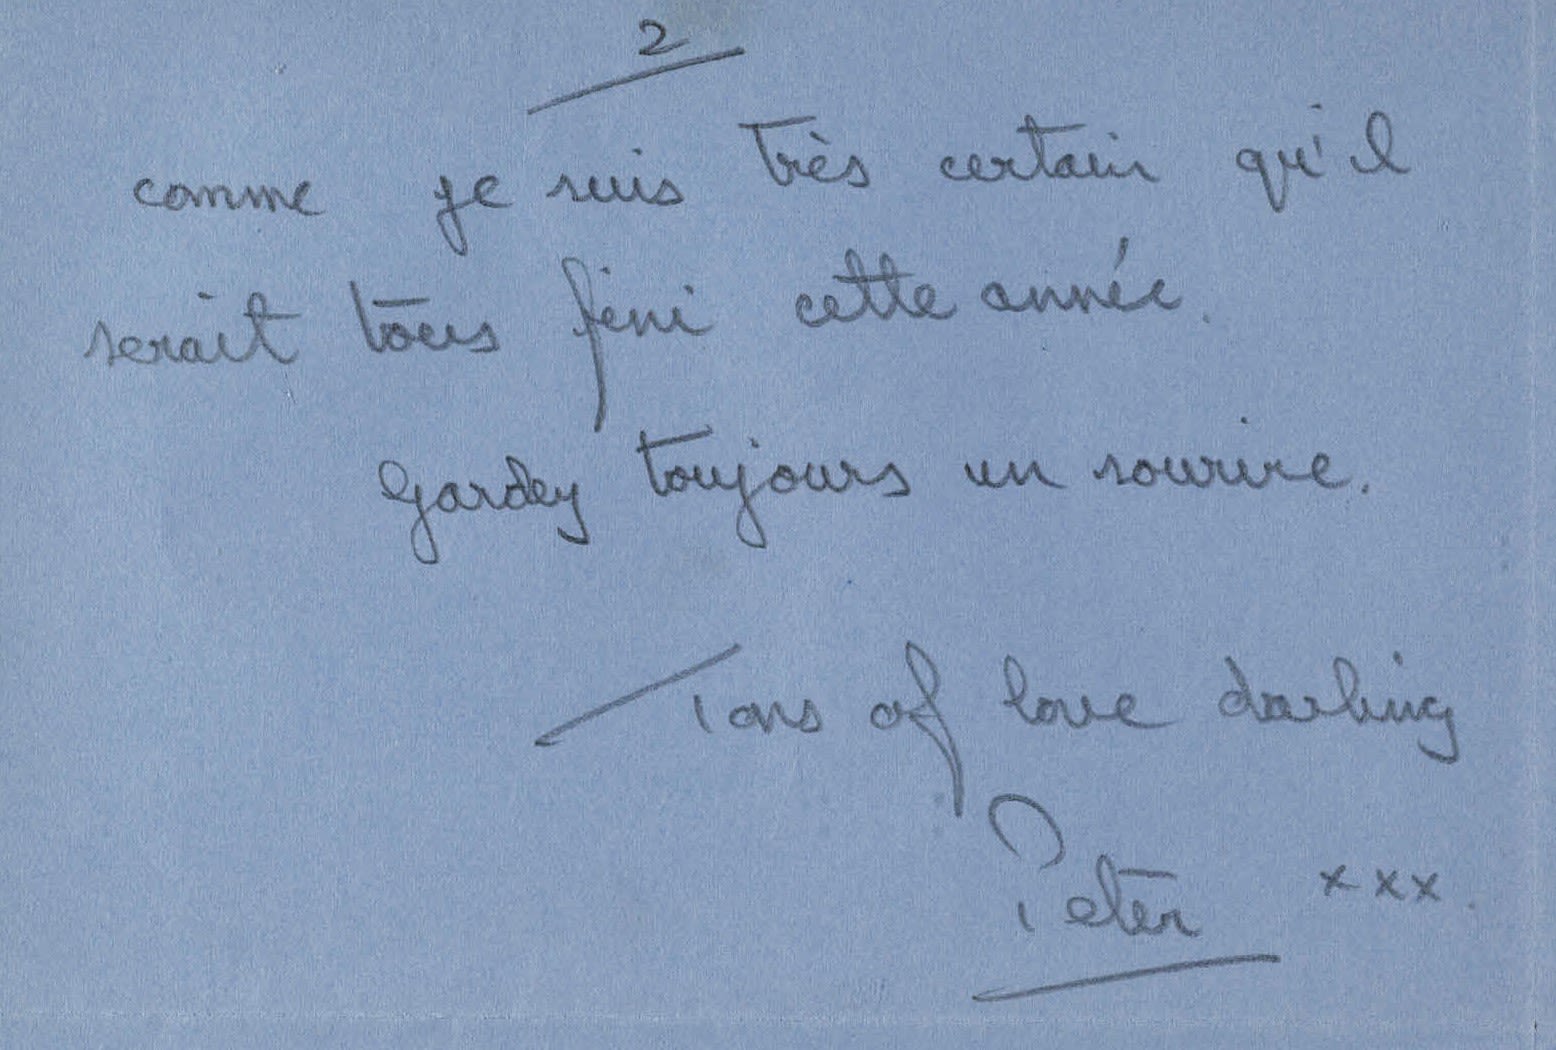 2
comme je suis très certain qu'il
serait tous fini cette année.
Gardez toujours un sourire.
Tons of love darling
Peter xxx.